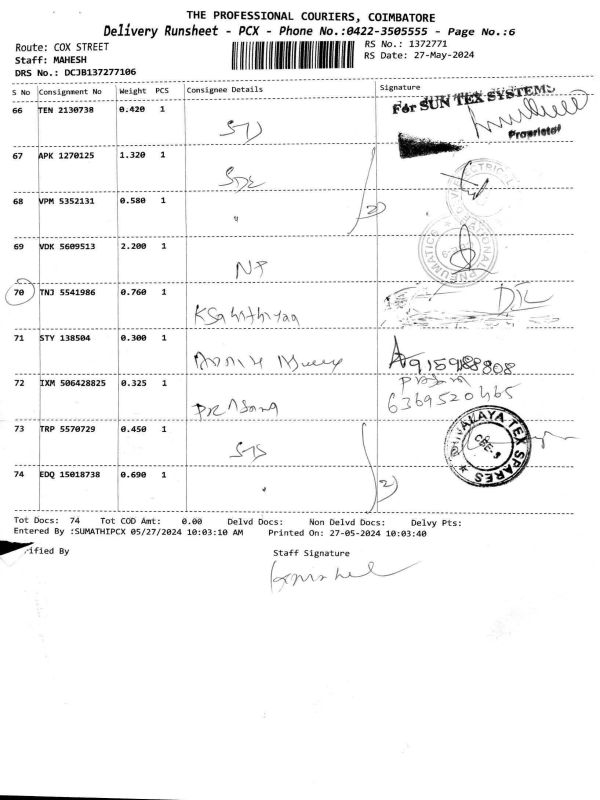 THE PROFESSIONAL COURIERS, COIMBATORE
Delivery Runsheet - PCX - Phone No.:0422-3505555 - Page No.:6
Route: COX STREET
RS No.: 1372771
Staff: MAHESH
RS Date: 27-May-2024
DRS No.: DCJB137277106
S No Consignment No Weight PCS Consignee Details Signature
66 TEN 2130738 0.420 1
For SUN TEX SYSTEMS
Proprietor
67 APK 1270125 1.320 1
68 VPM 5352131 0.580 1 " 2
69 VDK 5609513 2.200 1
NP
70 TNJ 5541986 0.760 1
71 STY 138504 0.300 1
9159188808
72 IXM 506428825 0.325 1
6369520465
73 TRP 5570729 0.450 1
STS
74 EDQ 15018738 0.690 1 " 2
TEX SPARES
CBE-9
Tot Docs: 74 Tot COD Amt: 0.00 Delvd Docs: Non Delvd Docs: Delvy Pts:
Entered By :SUMATHIPCX 05/27/2024 10:03:10 AM Printed On: 27-05-2024 10:03:40
ified By Staff Signature